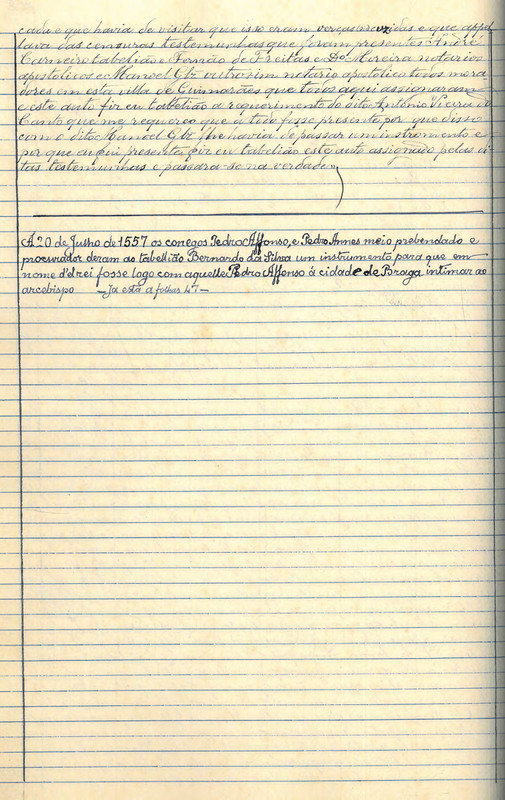 cado e que havia de visitar que isso eram verças e que appel
lava das censuras testemunhas que foram presentes: André
Carneiro tabelião e Fernão de Freitas e Dº Moreira notarios
apostolicos e Manoel Glz outrossim notario apostolico todos mora
dores em esta villa de Guimarães que todos aqui assignaram
e este auto fiz eu tabelião a requerimento do dito Antonio Vieira do
Canto que me requereo que a tudo fosse presente por que disso
com o dito Manoel Glz lhe havia de passar um instrumento e
por que eu fui presente fiz eu tabelião este auto assignado pelas di-
tas testemunhas e passara-se na verdade»
A 20 de Julho de 1557 os conegos Pedro Affonso, e Pedro Annes meio prebendado e
procurador deram ao tabellião Bernardo da Silva um instrumento para que em
nome d'elrei fosse logo com aquelle Pedro Affonso á cidade de Braga intimar ao
arcebispo —Ja está a folhas 47—